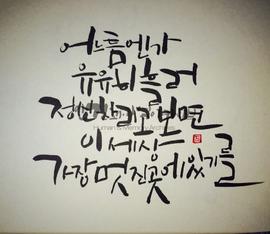 어느틈엔가
유유히 흘러
정신차리고 보면
이 세상
가장 멋진 곳에 있기를